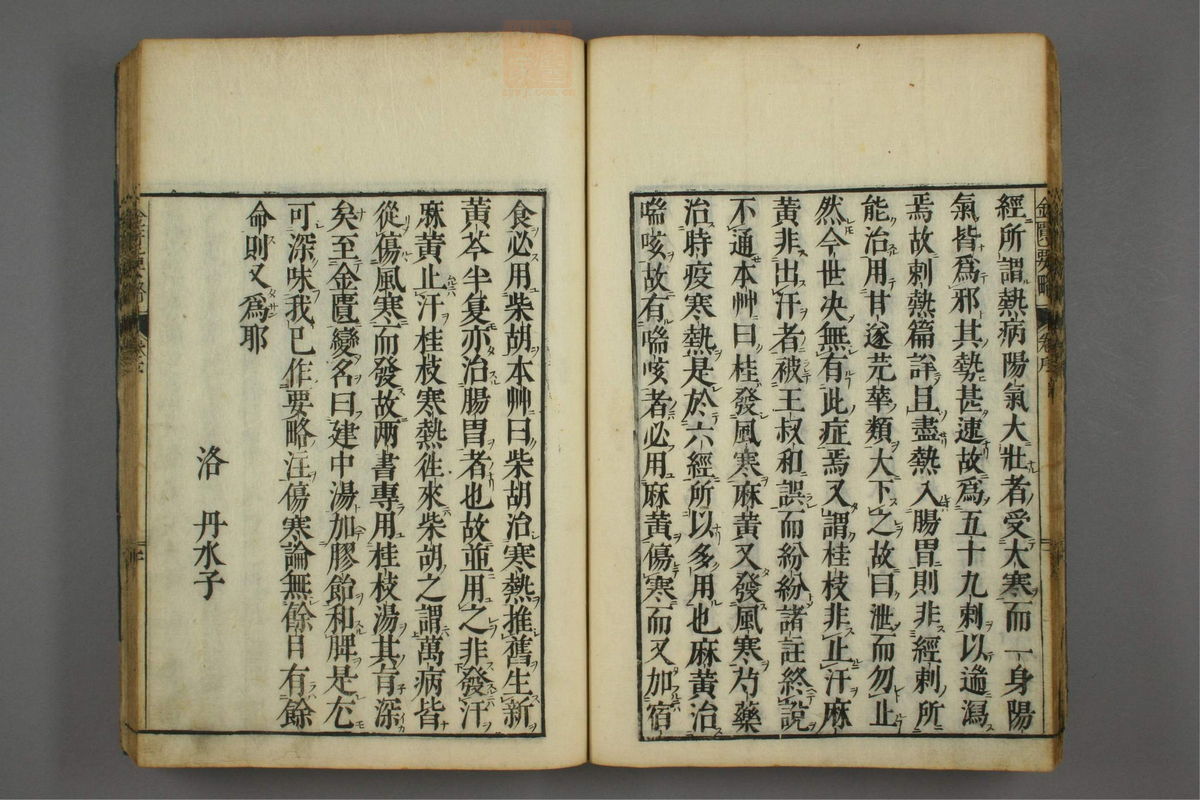 經所謂熱病陽氣大壯者受大寒而一身陽
氣皆爲邪其勢甚速故爲五十九刺以過瀉
焉故刺熱篇詳且盡熱入腸胃則非經刺所
能治用甘遂芫華類大下之故曰泄而勿止
然今世决無有此症焉又謂桂枝非止汗麻
黄非出汗者被王叔和誤而紛紛諸註終説
不通本艸曰桂發風寒麻黄又發風寒芍藥
治時疫寒熱是於六經所以多用也麻黄治
喘咳故有喘咳者必用麻黄傷寒而又加宿
食必用柴胡本艸曰柴胡治寒熱推舊生新
黄芩半夏亦治腸胃者也故並用之非發汗
麻黄止汗桂枝寒熱徃來柴胡之謂萬病皆
從傷風寒而發故兩書專用桂枝湯其旨深
矣至金匱變名曰建中湯加膠飴和脾是尤
可深味我已作要略注傷寒論無餘日有餘
命則又爲耶
洛 丹水子
金匱要略